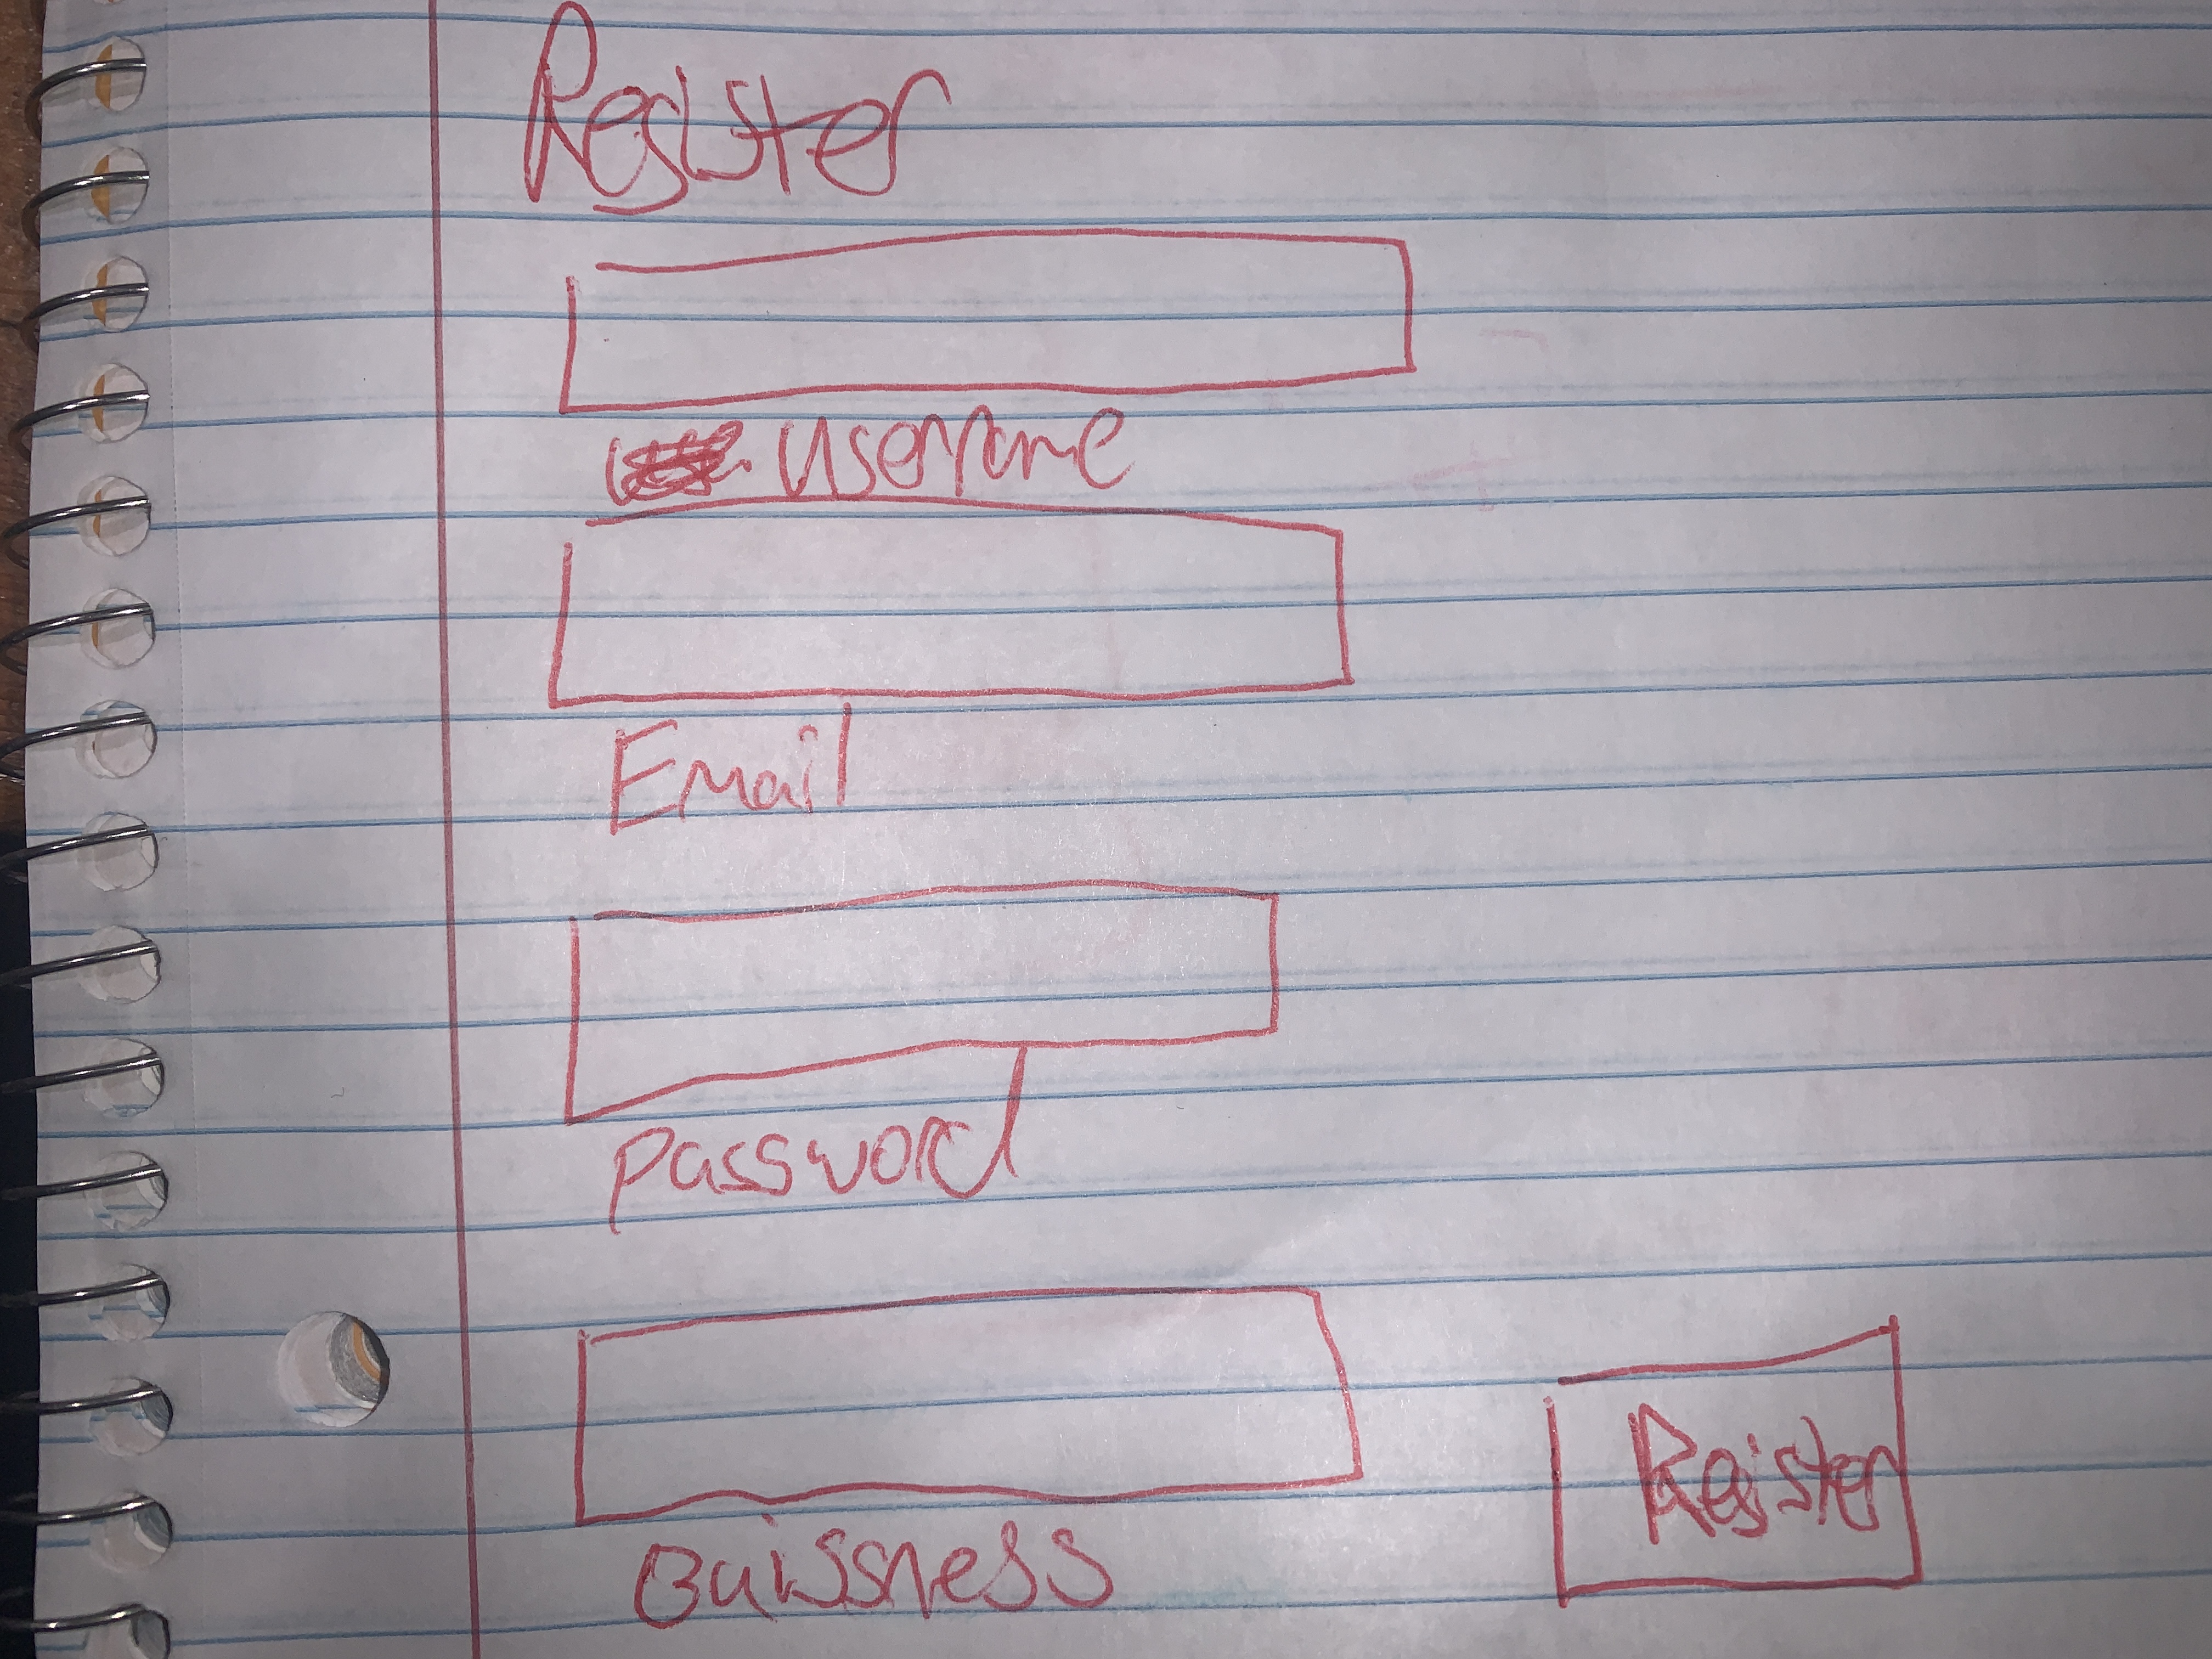 Register
username
Email
password
Buissness
Register